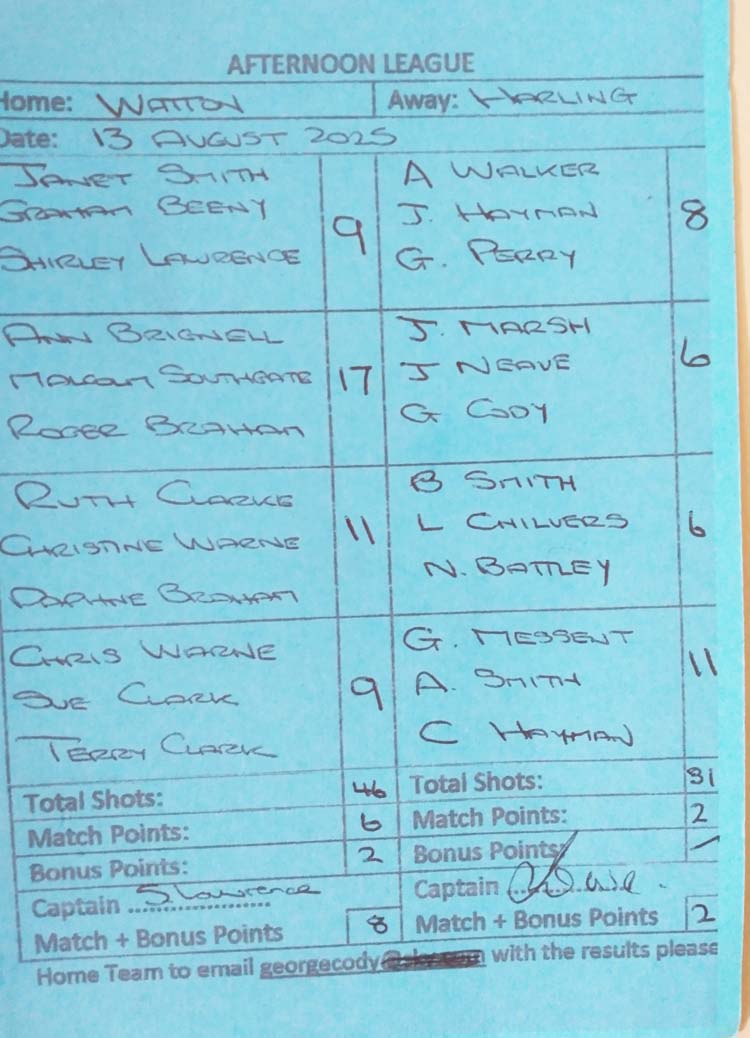 AFTERNOON LEAGUE
Home: WATTON Away: HARLING
Date: 13 AUGUST 2025
JANET SMITH A WALKER
GRAHAM BEENY 9 J. HAYMAN 8
SHIRLEY LAWRENCE G. PERRY
ANN BRIGNELL J. MARSH
MALCOLM SOUTHGATE 17 J NEAVE 6
ROGER BRAHAM G CODY
RUTH CLARKE B SMITH
CHRISTINE WARNE 11 L CHILVERS 6
DAPHNE BRAHAM N. BATTLEY
CHRIS WARNE G. MESSENT
SUE CLARK 9 A. SMITH 11
TERRY CLARK C HAYMAN
Total Shots: 46 Total Shots: 31
Match Points: 6 Match Points: 2
Bonus Points: 2 Bonus Points: /
Captain S Lawrence Captain
Match + Bonus Points 8 Match + Bonus Points 2
Home Team to email georgecody@ with the results please